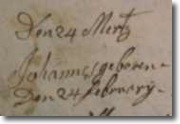 Den 24 Mertz
Johannes geboren
Den 24 February